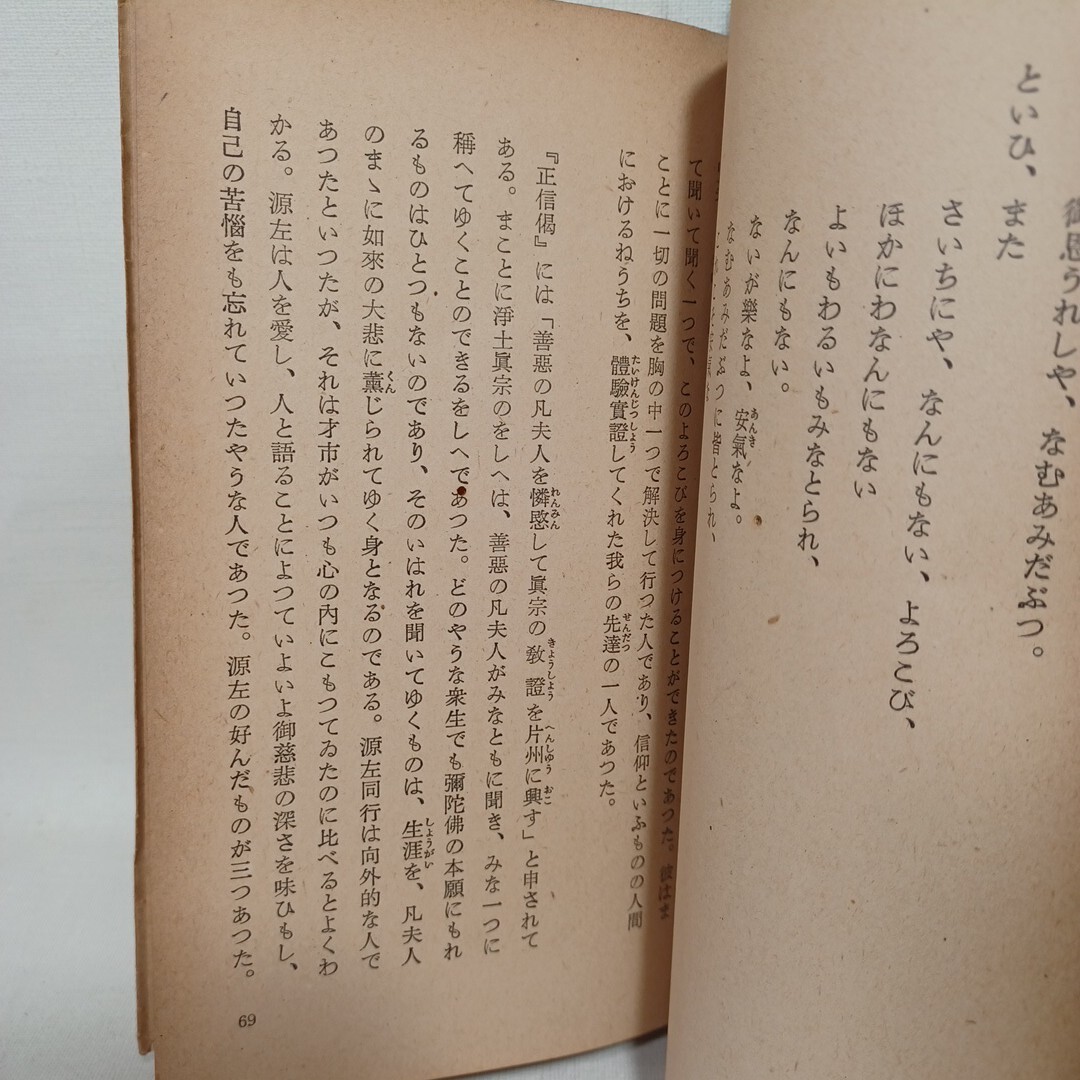 御恩うれしや、なむあみだぶつ。
といひ、また
さいちにや、なんにもない、よろこび、
ほかにわなんにもない
よいもわるいもみなとられ、
なんにもない。
ないが樂なよ、安氣なよ。
あんき
なむあみだぶつに皆とられ、
て聞いて聞く一つで、このよろこびを身につけることができたのであつた。彼はま
ことに一切の問題を胸の中一つで解決して行つた人であり、信仰といふものの人間
におけるねうちを、體驗實證してくれた我らの先達の一人であつた。
たいけんじつしよう
せんだつ
『正信偈』には「善惡の凡夫人を憐愍して眞宗の敎證を片州に興す」と申されて
れんみん
きようしよう
へんしゆう
おこ
ある。まことに淨土眞宗のをしへは、善惡の凡夫人がみなともに聞き、みな一つに
稱へてゆくことのできるをしへであつた。どのやうな衆生でも彌陀佛の本願にもれ
るものはひとつもないのであり、そのいはれを聞いてゆくものは、生涯を、凡夫人
しようがい
のまゝに如來の大悲に薫じられてゆく身となるのである。源左同行は向外的な人で
くん
あつたといつたが、それは才市がいつも心の內にこもつてゐたのに比べるとよくわ
かる。源左は人を愛し、人と語ることによつていよいよ御慈悲の深さを味ひもし、
自己の苦惱をも忘れていつたやうな人であつた。源左の好んだものが三つあつた。
69